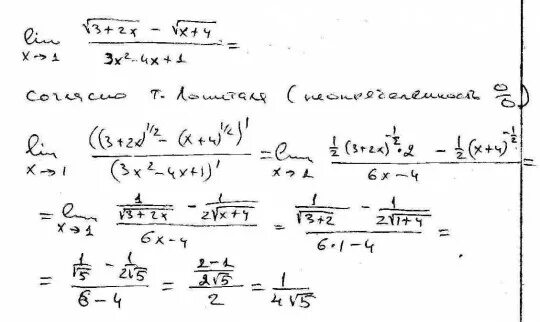 lim x→1 (√(3+2x) − √(x+4)) / (3x²−4x+1) =
согласно т. Лопиталя (неопределенность 0/0)
lim x→1 ((3+2x)^(1/2) − (x+4)^(1/2))' / (3x²−4x+1)' = lim x→1 (1/2 (3+2x)^(−1/2) · 2 − 1/2 (x+4)^(−1/2)) / (6x−4) =
= lim x→1 (1/√(3+2x) − 1/(2√(x+4))) / (6x−4) = (1/√(3+2) − 1/(2√(1+4))) / (6·1−4) =
= (1/√5 − 1/(2√5)) / (6−4) = ((2−1)/(2√5)) / 2 = 1/(4√5)